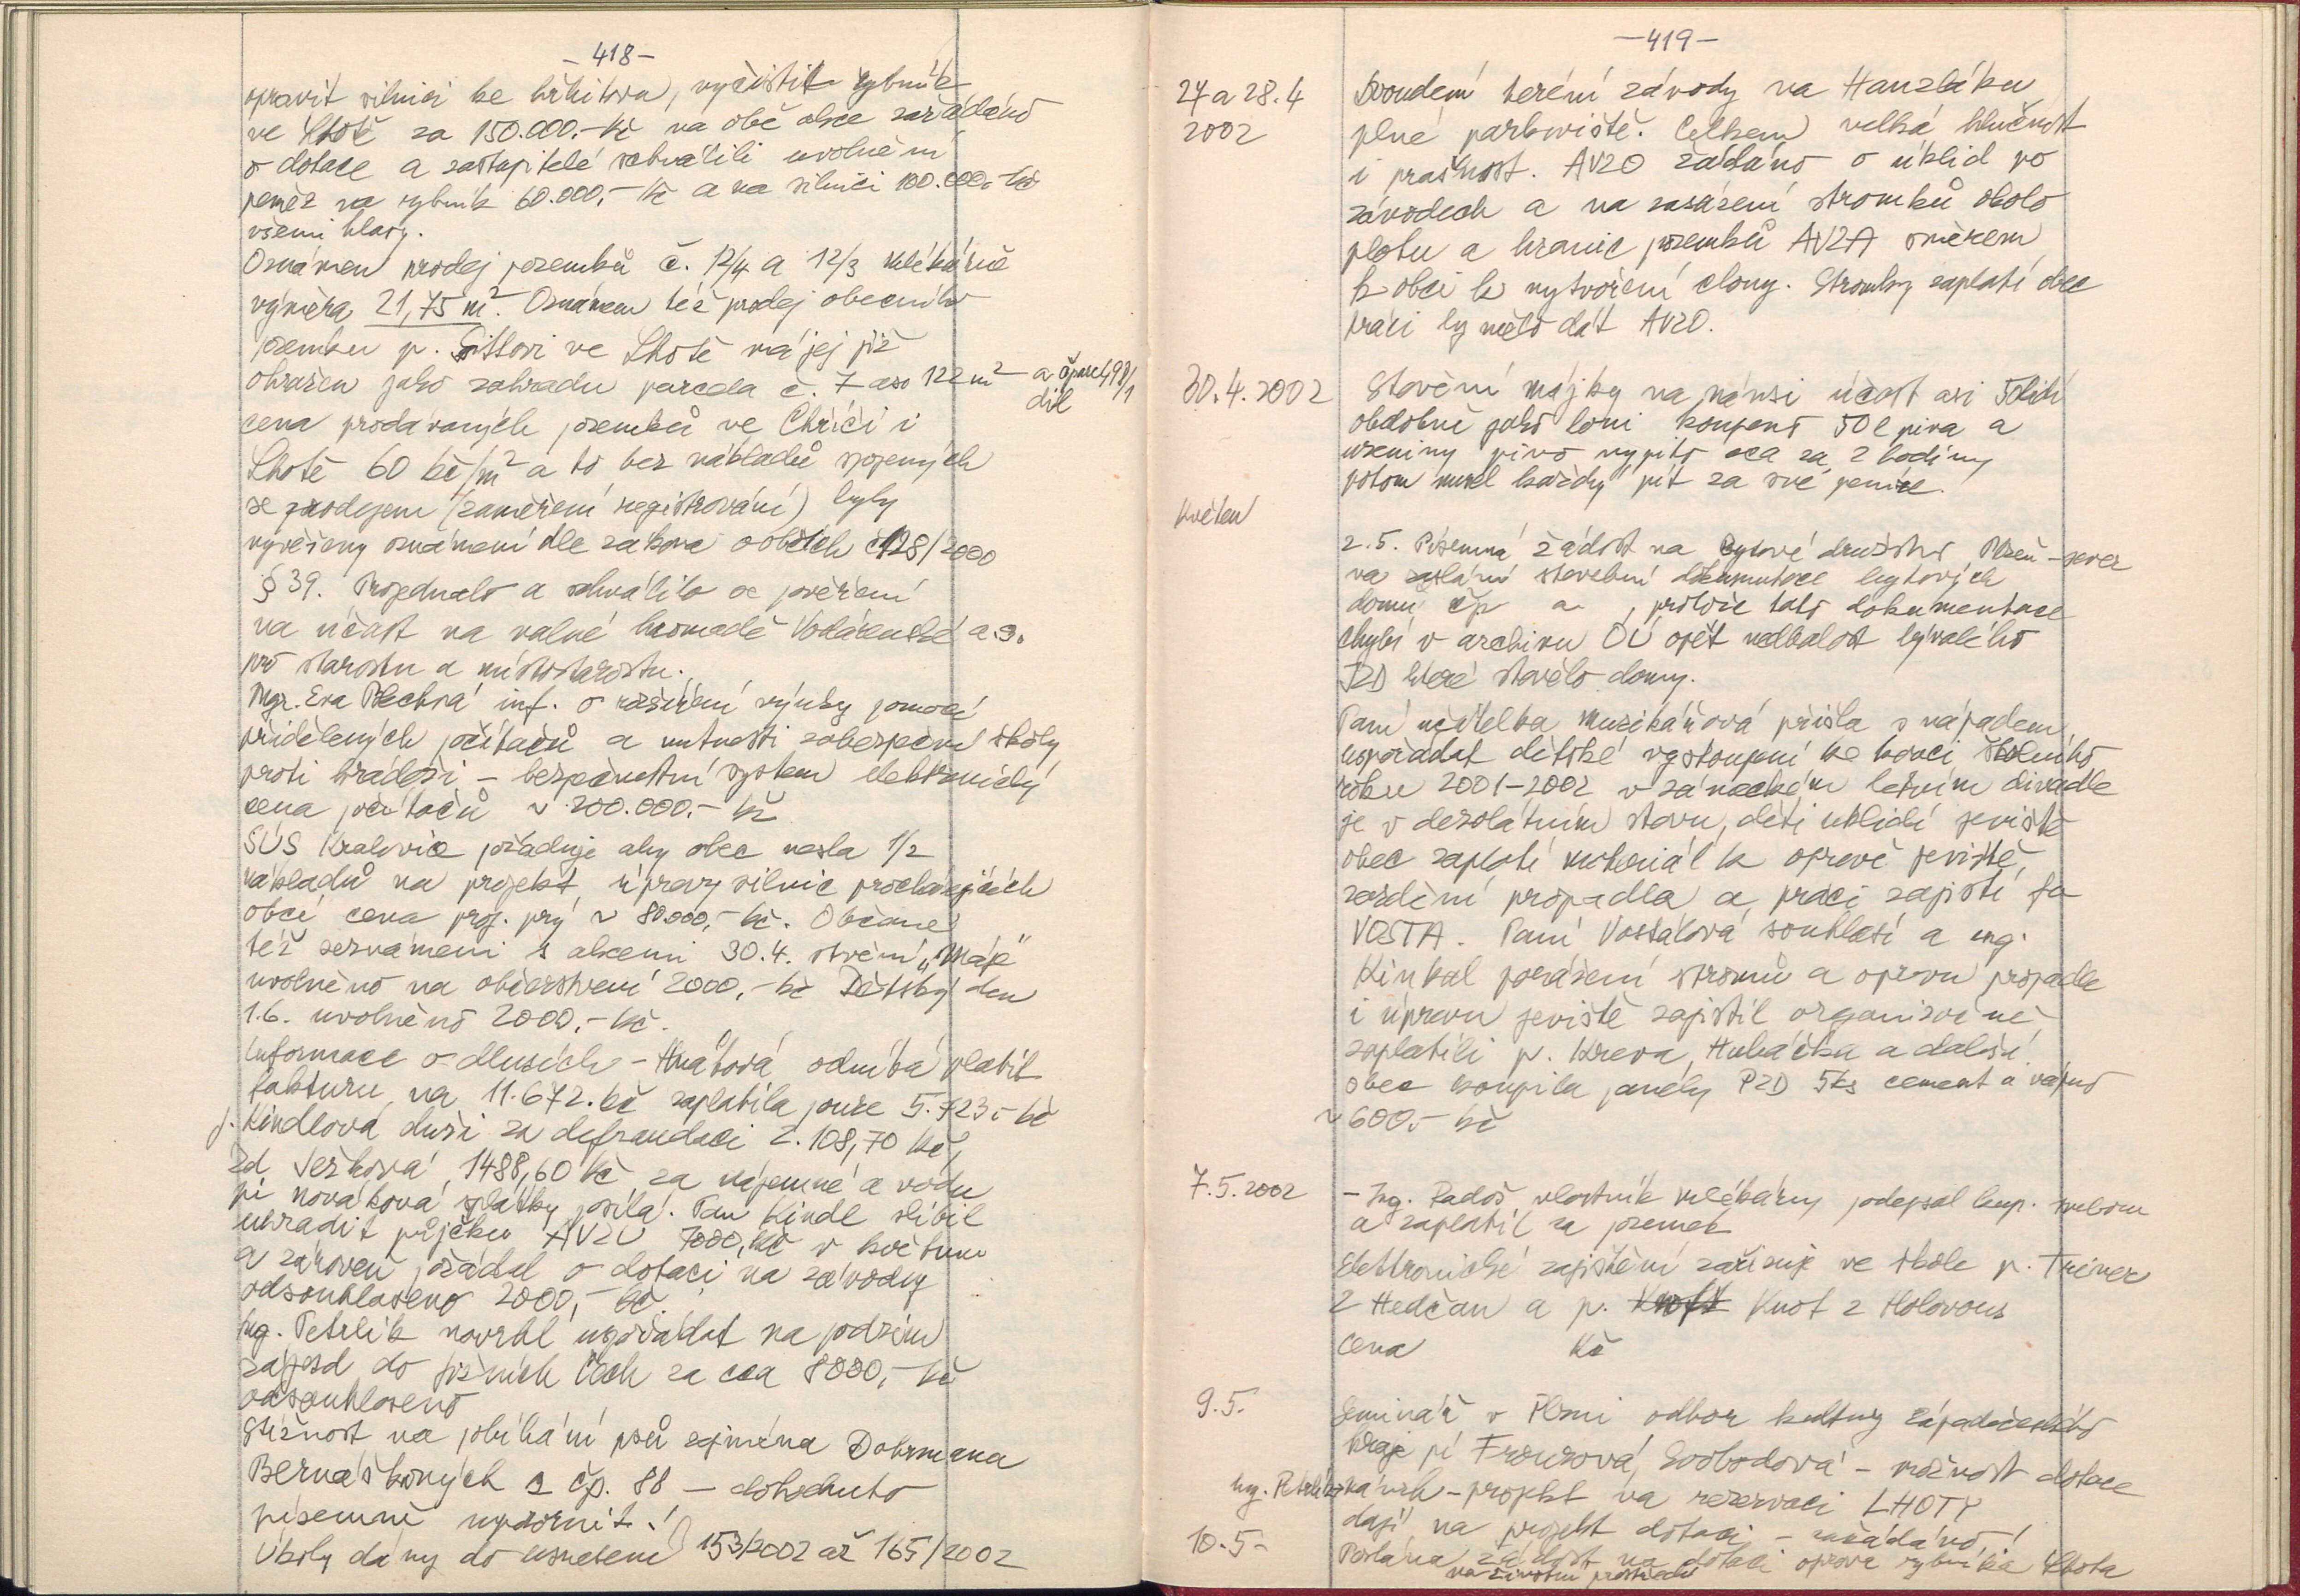 -418-
opravit silnici ke hřbitovu, vyčistit rybník
ve Lhotě za 150.000.-Kč na obě akce zažádáno
o dotace a zastupitelé schválili uvolnění
peněz na rybník 60.000,-Kč a na silnici 100.000.-Kč
všemi hlasy.
Oznámen prodej pozemků č. 12/4 a 12/3 mlékárně
výměra 21,75 m². Oznámen též prodej obecního
pozemku p. ve Lhotě má jej již
ohražen jako zahradu parcela č. 7 aso 122 m² - a 498/1
díl
cena prodávaných pozemků ve Chříči i
Lhotě 60 kč/m² a to bez nákladů spojených
se prodejem (zaměření registrování) byly
vyvěšeny oznámení dle zákona o obcích č 128/2000
§ 39. Projednalo a schválilo se pověření
na účast na valné hromadě Vodárenské a.s.
pro starostu a místostarostu.
Mgr. Eva Plechatá inf. o rozšíření výuky pomocí
přidělených počítačů a nutnosti zabezpečení školy
proti krádeži - bezpečnostní system elektronický
cena počítačů ~ 200.000.- Kč
SÚS Kralovice požaduje aby obec nesla 1/2
nákladů na projekt úpravy silnic procházejících
obcí cena proj. prý ~ 80000,- Kč. Občané
též seznámeni s akcemi 30.4. stvění „Máje"
uvolněno na občerstvení 2000,-Kč Dětský den
1.6. uvolněno 2000,-Kč.
Informace o dluzích - Hnátová odmítá platit
fakturu na 11.672.Kč zaplatila pouze 5.723,-Kč
p. Kindlová dluží za defraudaci 2.108,70 Kč,
zd Ježková 1488,60 Kč za nájemné a vodu
pí Nováková splátky posílá. Pan Kindl slíbil
uhradit půjčku AVZO 7000,Kč v květnu
a zároveň požádal o dotaci na závody
odsouhlaseno 2000,- Kč
Ing. Petrlík navrhl uspořádat na podzim
zájezd do jižních Čech za cca 8000,-Kč
odsouhlaseno
Stížnost na pobíhání psů zejména Dobrmana
Bernáškových z čp. 88 - dohodnuto
písemně upozornit!
Úkoly dány do usnesení 153/2002 až 165/2002
-419-
27 a 28.4
2002
Dvoudení terénní závody na Hanzláku
plné parkoviště. Celkem velká hlučnost
i prašnost. AVZO žádáno o úklid po
závodech a na zasázení stromků okolo
plotu a hranic pozemků AVZA směrem
k obci k vytvoření clony. Stromky zaplatí obec
práci by mělo dát AVZO.
30.4.2002
Stavění májky na návsi účast asi 50lidí
obdobně jako loni koupeno 50 l piva a
uzeniny pivo vypito cca za 2 hodiny
potom musel každý pít za své peníze.
Květen
2.5. Písemná žádost na Bytové družstvo Plzeň-sever
na zaslání stavební dokumentace bytových
domů čp a , protože tato dokumentace
chybí v archivu OÚ opět nedbalost bývalého
JZD které stavělo domy.
Paní učitelka Muzikářová přišla s nápadem
uspořádat dětské vystoupení ke konci školního
roku 2001-2002 v zámeckém letním divadle
je v dezolátním stavu, děti uklidí jeviště
obec zaplatí materiál k opravě jeviště,
zazdění propadla a práci zajistí fa
VOSTA. Paní Vostálová souhlasí a ing.
Kinkal pokácení stromů a opravu propadle
i úpravu jeviště zajistil organizačně
zaplatili p. Kreva, Hubáčka a další
obec koupila panely PZD 5ks cement a vápno
~ 600,- Kč
7.5.2002
- Ing. Radoš vlastník mlékárny podepsal kup. smlouvu
a zaplatil za pozemek
Elektronické zajištění zařizuje ve škole p. Treiver
z Hedčan a p. Knot z Holovous
Cena Kč
9.5.
Seminář v Plzni odbor kultury Západočeského
kraje pí Frousová, Svobodová - možnost dotace
Ing. Petrlík - projekt na rezervaci LHOTY
dají na projekt dotaci - zažádáno!
10.5-
Poslána žádost na dotaci oprava rybníka Lhota
na životní prostředí